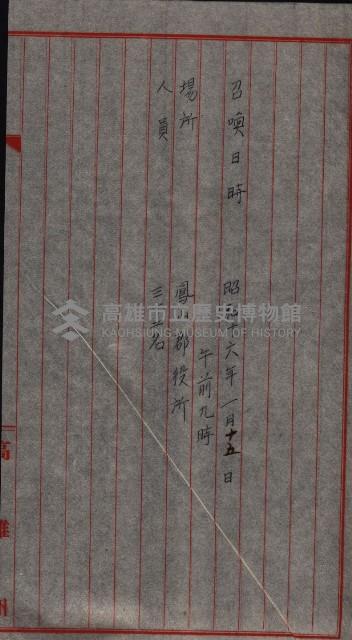 召喚日時 昭和十六年一月十五日
午前九時
場所 鳳山郡役所
人員 三名
高雄州
高雄市立歷史博物館
KAOHSIUNG MUSEUM OF HISTORY